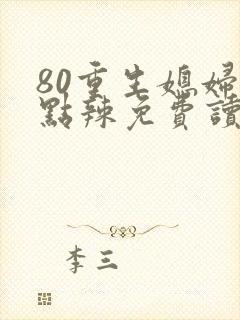 80重生媳婦
點辣免費讀
李三